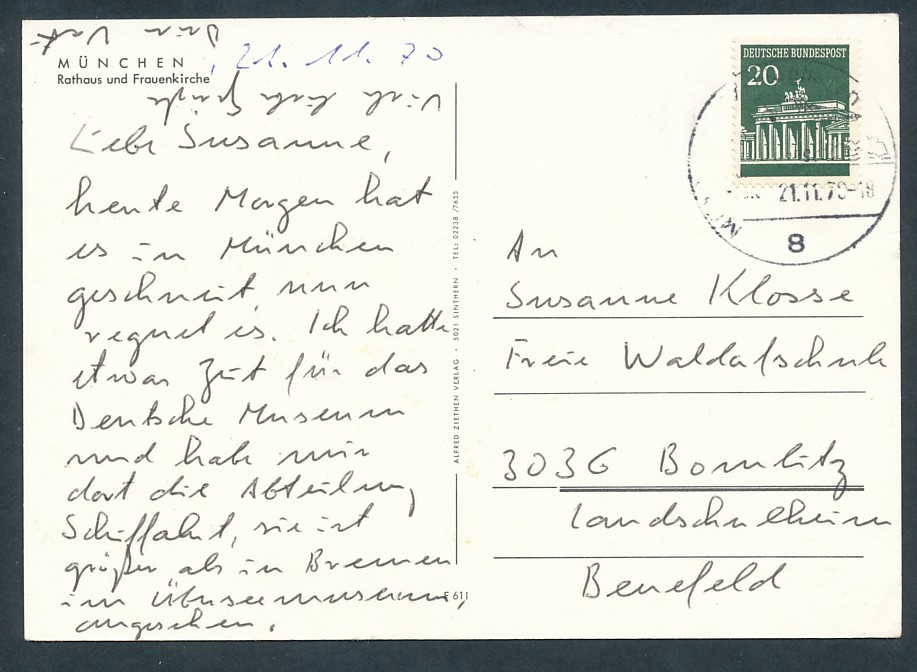 MÜNCHEN
Rathaus und Frauenkirche
21. 11. 70
Liebe Susanne,
heute Morgen hat
es in München
geschneit, nun
regnet es. Ich hatte
etwas Zeit für das
Deutsche Museum
und habe mir
dort die Abteilung
Schiffahrt, sie ist
größer als in Bremen
im Überseemuseum,
angesehen.
Viele liebe Grüße
Dein Vati
E 611
ALFRED ZIETHEN VERLAG · 5021 SINTHERN · TEL: 02238 /7655
DEUTSCHE BUNDESPOST
20
21.11.70-18
8
An
Susanne Klosse
Freie Waldorfschule
3036 Bomlitz
Landschulheim
Benefeld